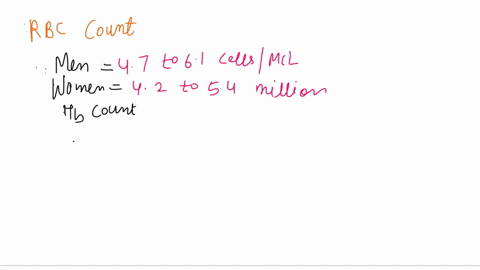 RBC Count
Men = 4.7 to 6.1 cells/MCL
Women = 4.2 to 5.4 million
Hb Count